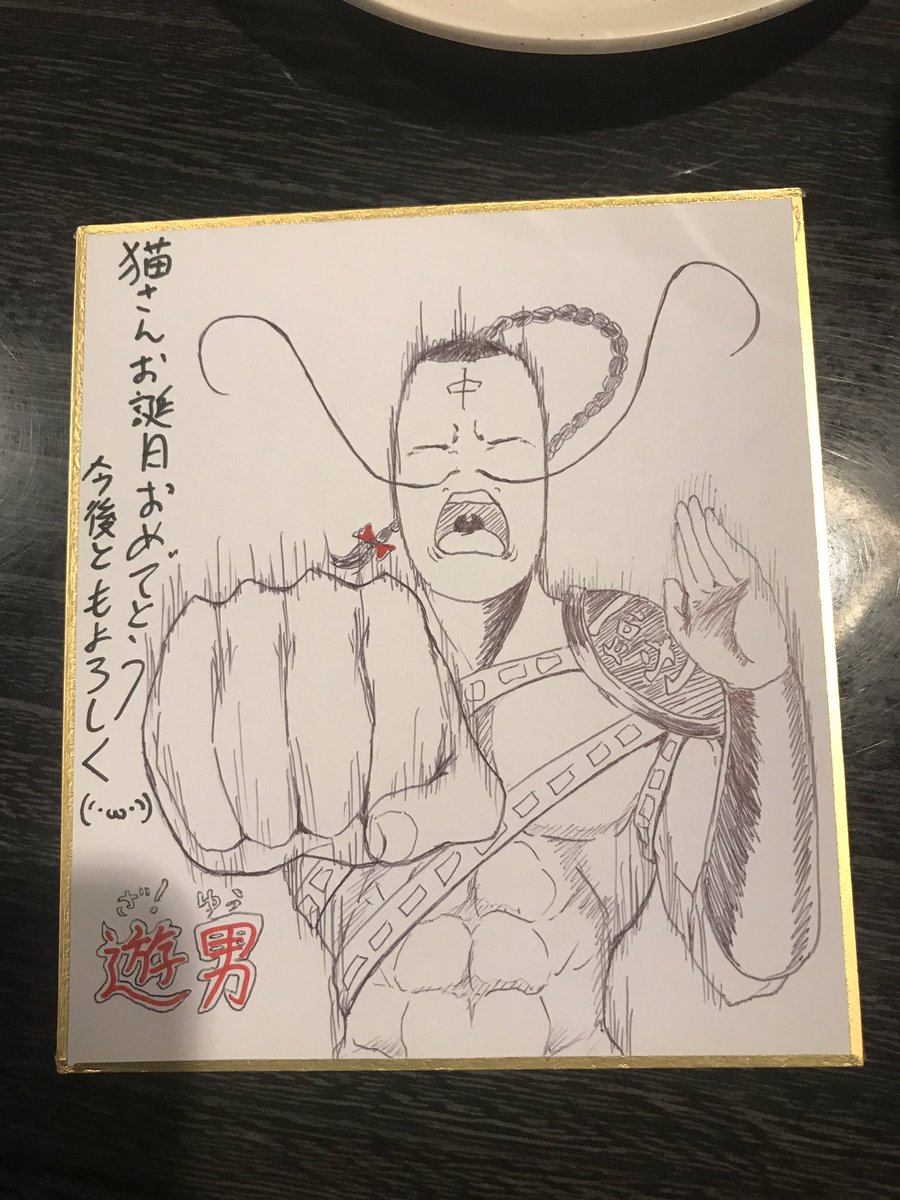 猫さんお誕日おめでとう
今後ともよろしく
(('･ω･'))
中
ざ!ゆう
遊男